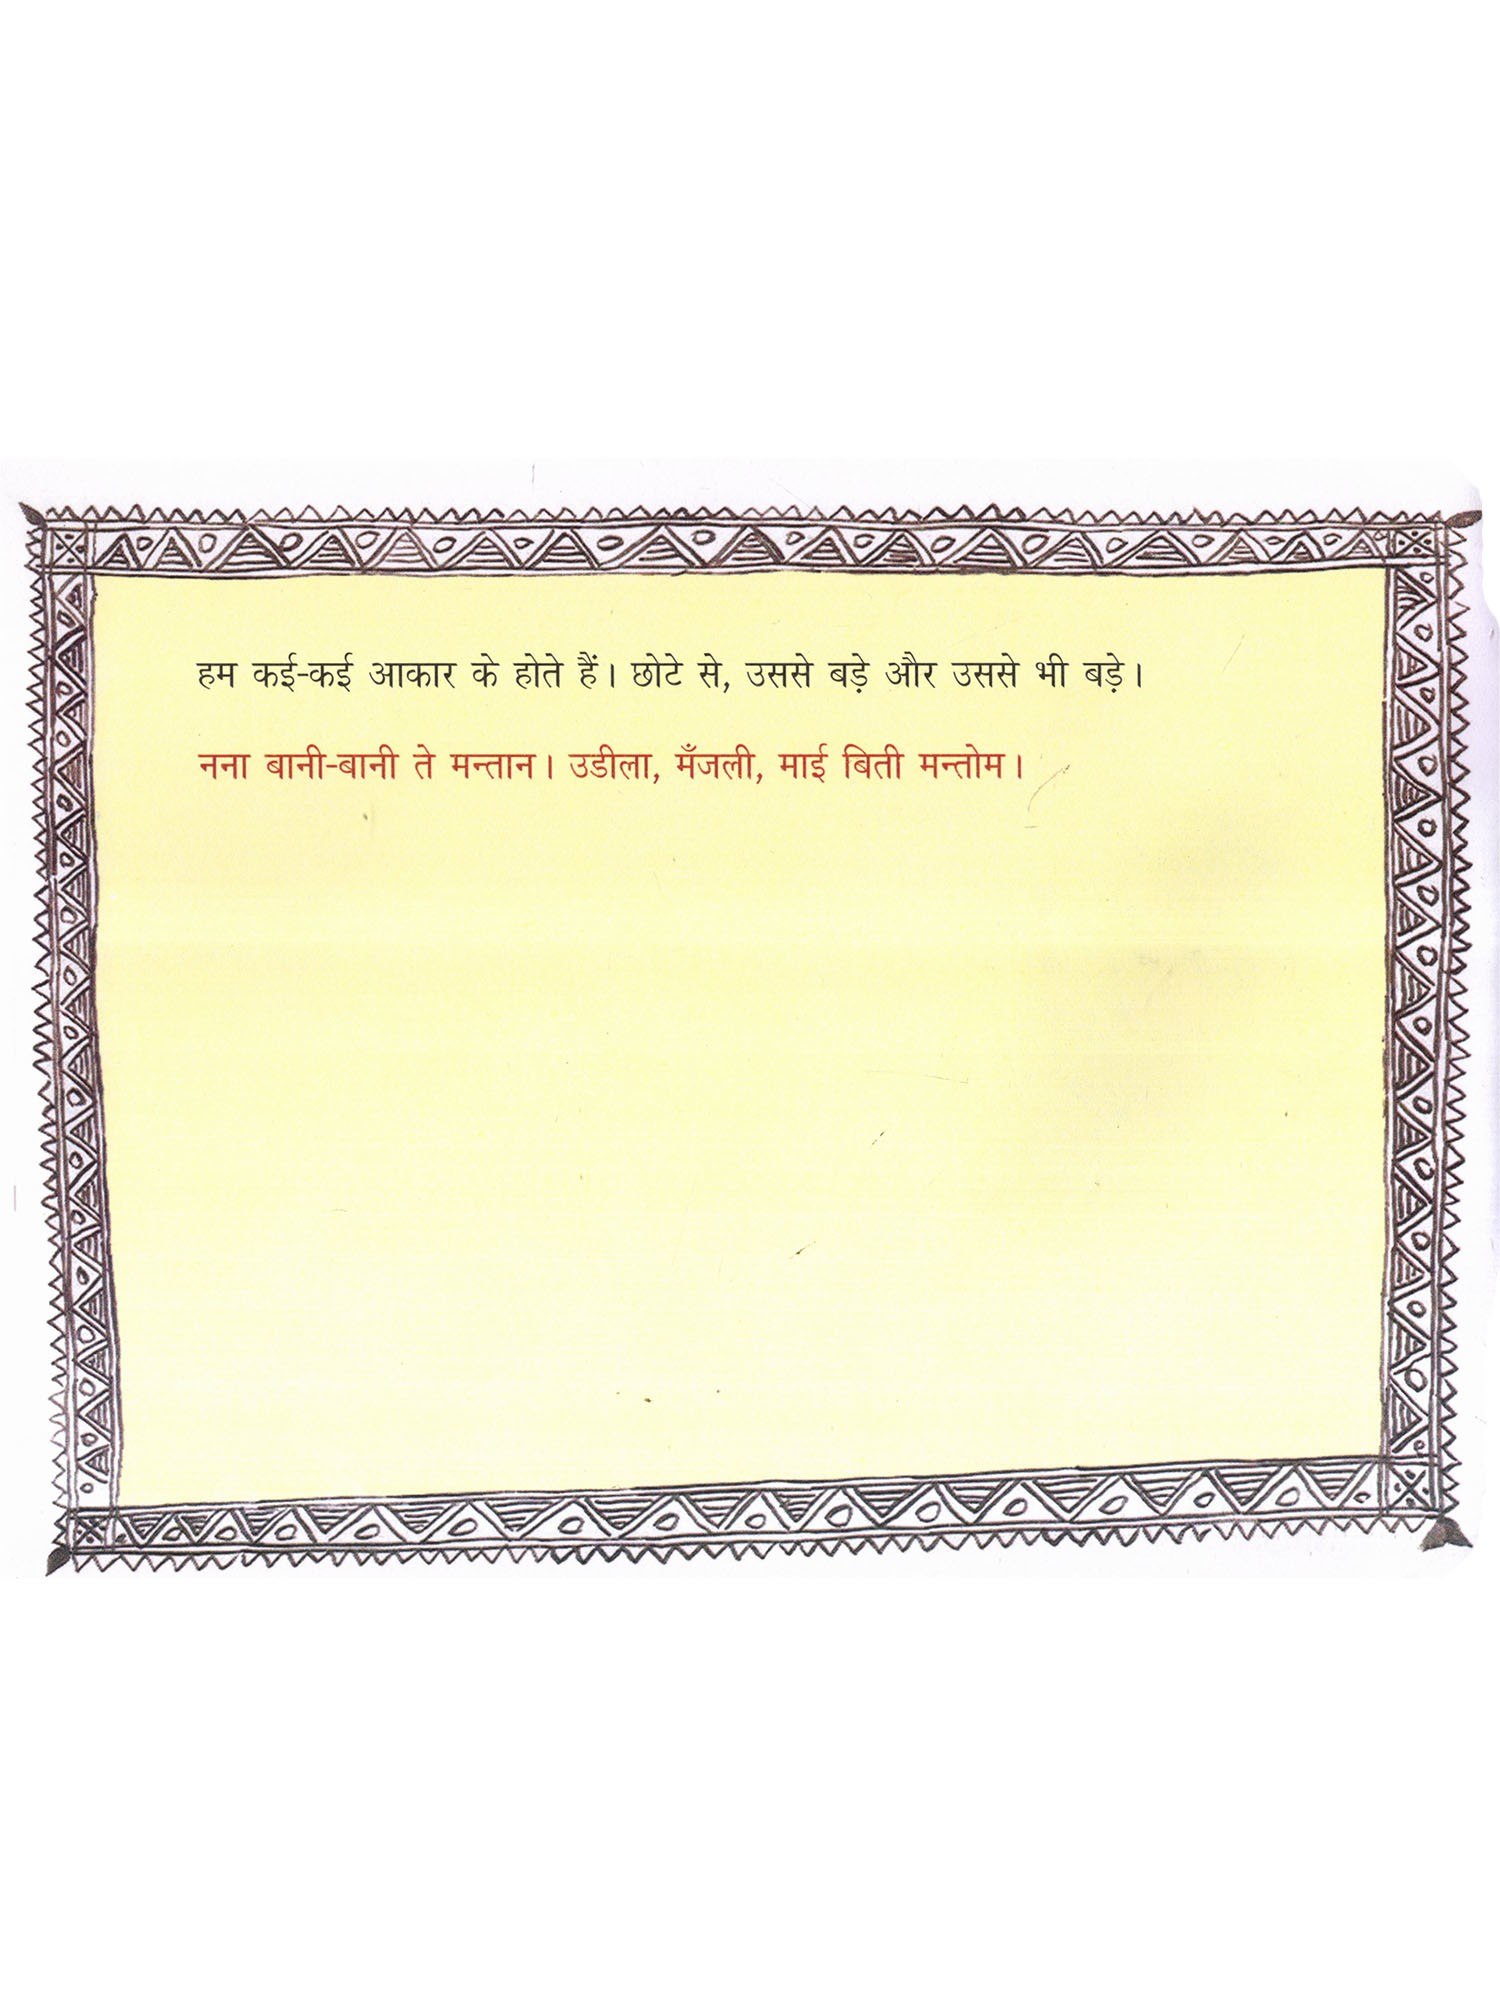 हम कई-कई आकार के होते हैं। छोटे से, उससे बड़े और उससे भी बड़े।
नना बानी-बानी ते मन्तान। उडीला, मँजली, माई बिती मन्तोम।